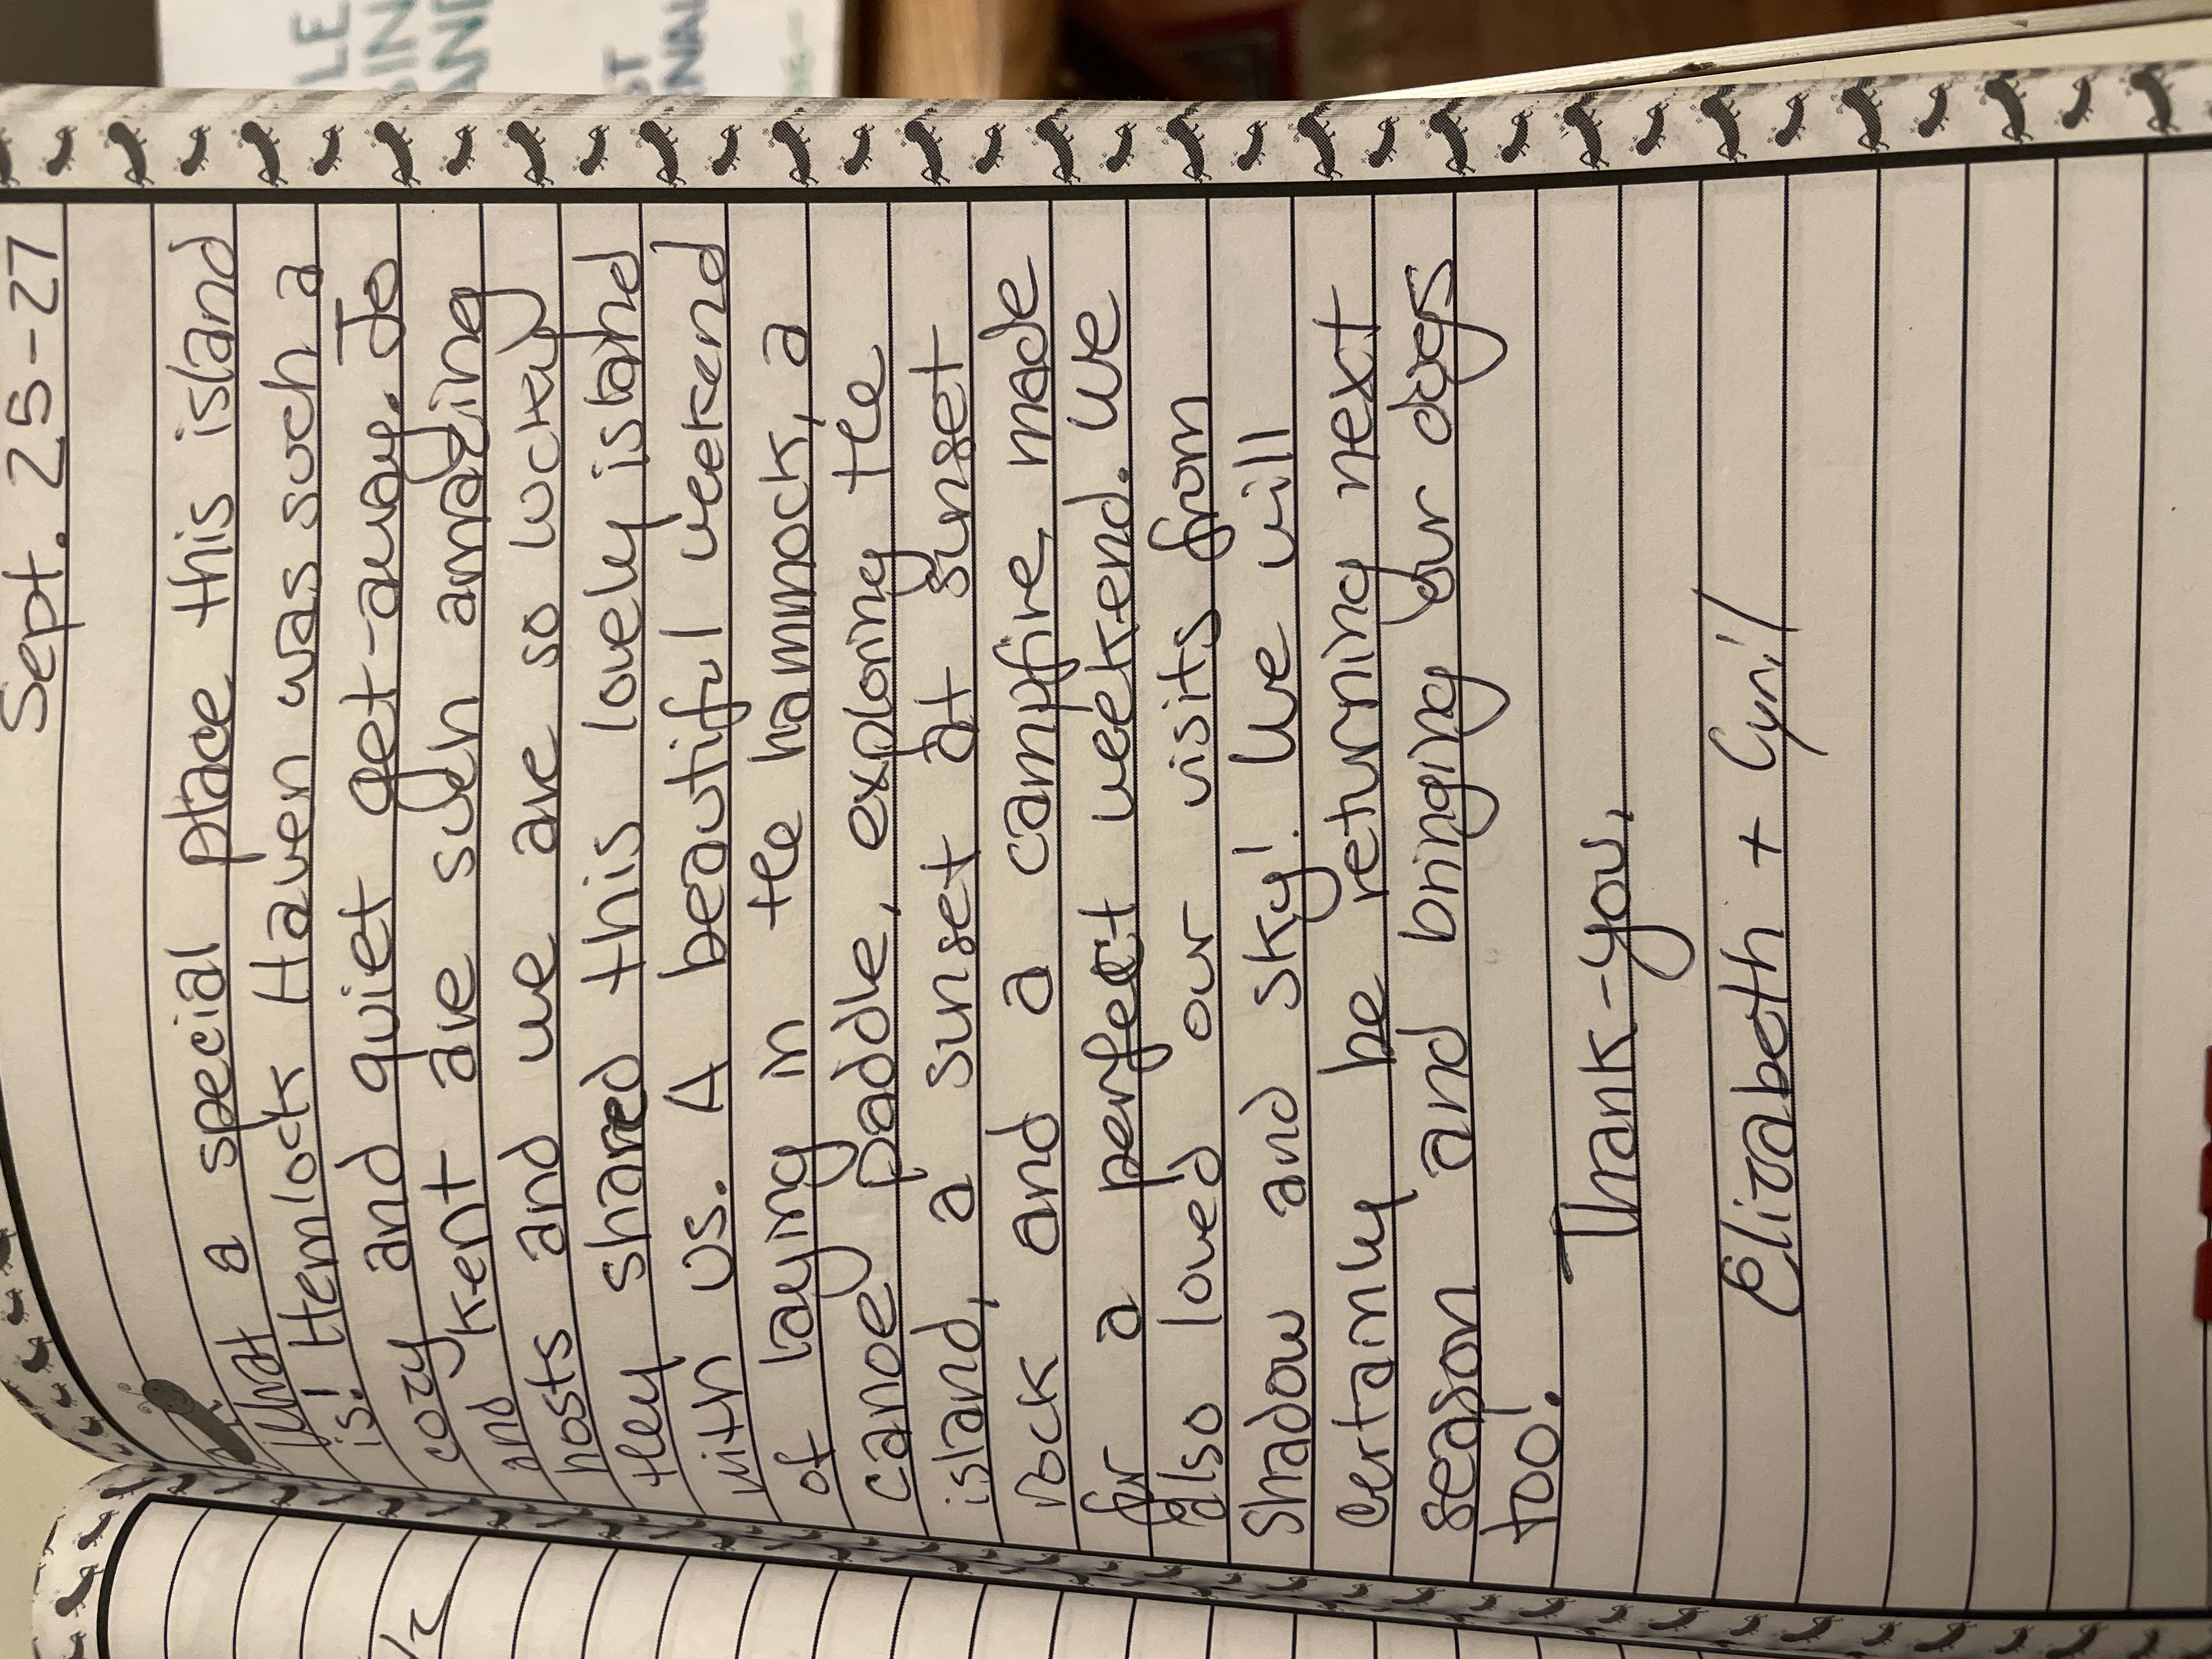 Sept. 25-27
What a special place this island
is! Hemlock Haven was such a
cozy and quiet get-away. Jo
and Kent are such amazing
hosts and we are so lucky
they shared this lovely island
with us. A beautiful weekend
of laying in the hammock, a
canoe paddle, exploring the
island, a sunset at sunset
rock and a campfire made
for a perfect weekend. We
also loved our visits from
Shadow and Sky! We will
certainly be returning next
season and bringing our dogs
too!
Thank-you,
Elizabeth + Cyril